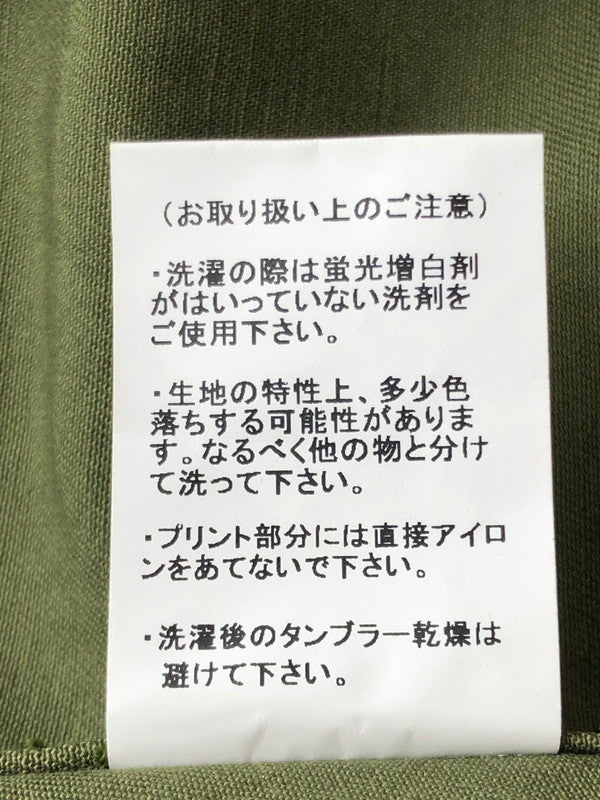 （お取り扱い上のご注意）
・洗濯の際は蛍光増白剤
がはいっていない洗剤を
ご使用下さい。
・生地の特性上、多少色
落ちする可能性がありま
す。なるべく他の物と分け
て洗って下さい。
・プリント部分には直接アイロ
ンをあてないで下さい。
・洗濯後のタンブラー乾燥は
避けて下さい。